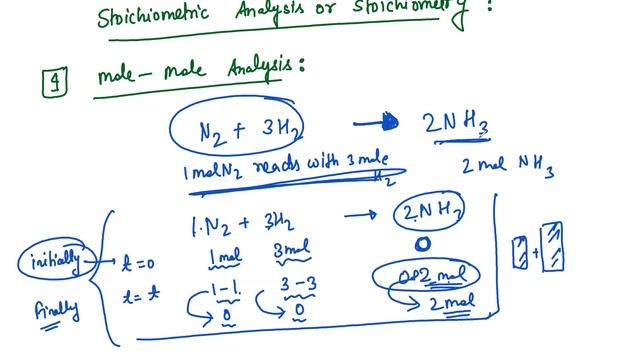 Stoichiometric Analysis or Stoichiometry :
1 mole - mole Analysis :
N₂ + 3H₂ → 2NH₃
1 mol N₂ reacts with 3 mole H₂ 2 mol NH₃
1.N₂ + 3H₂ → 2.NH₂
1 mol 3 mol 0
initially → t=0
t=t 1-1. 3-3 0+2 mol
Finally 0 0 2 mol
+